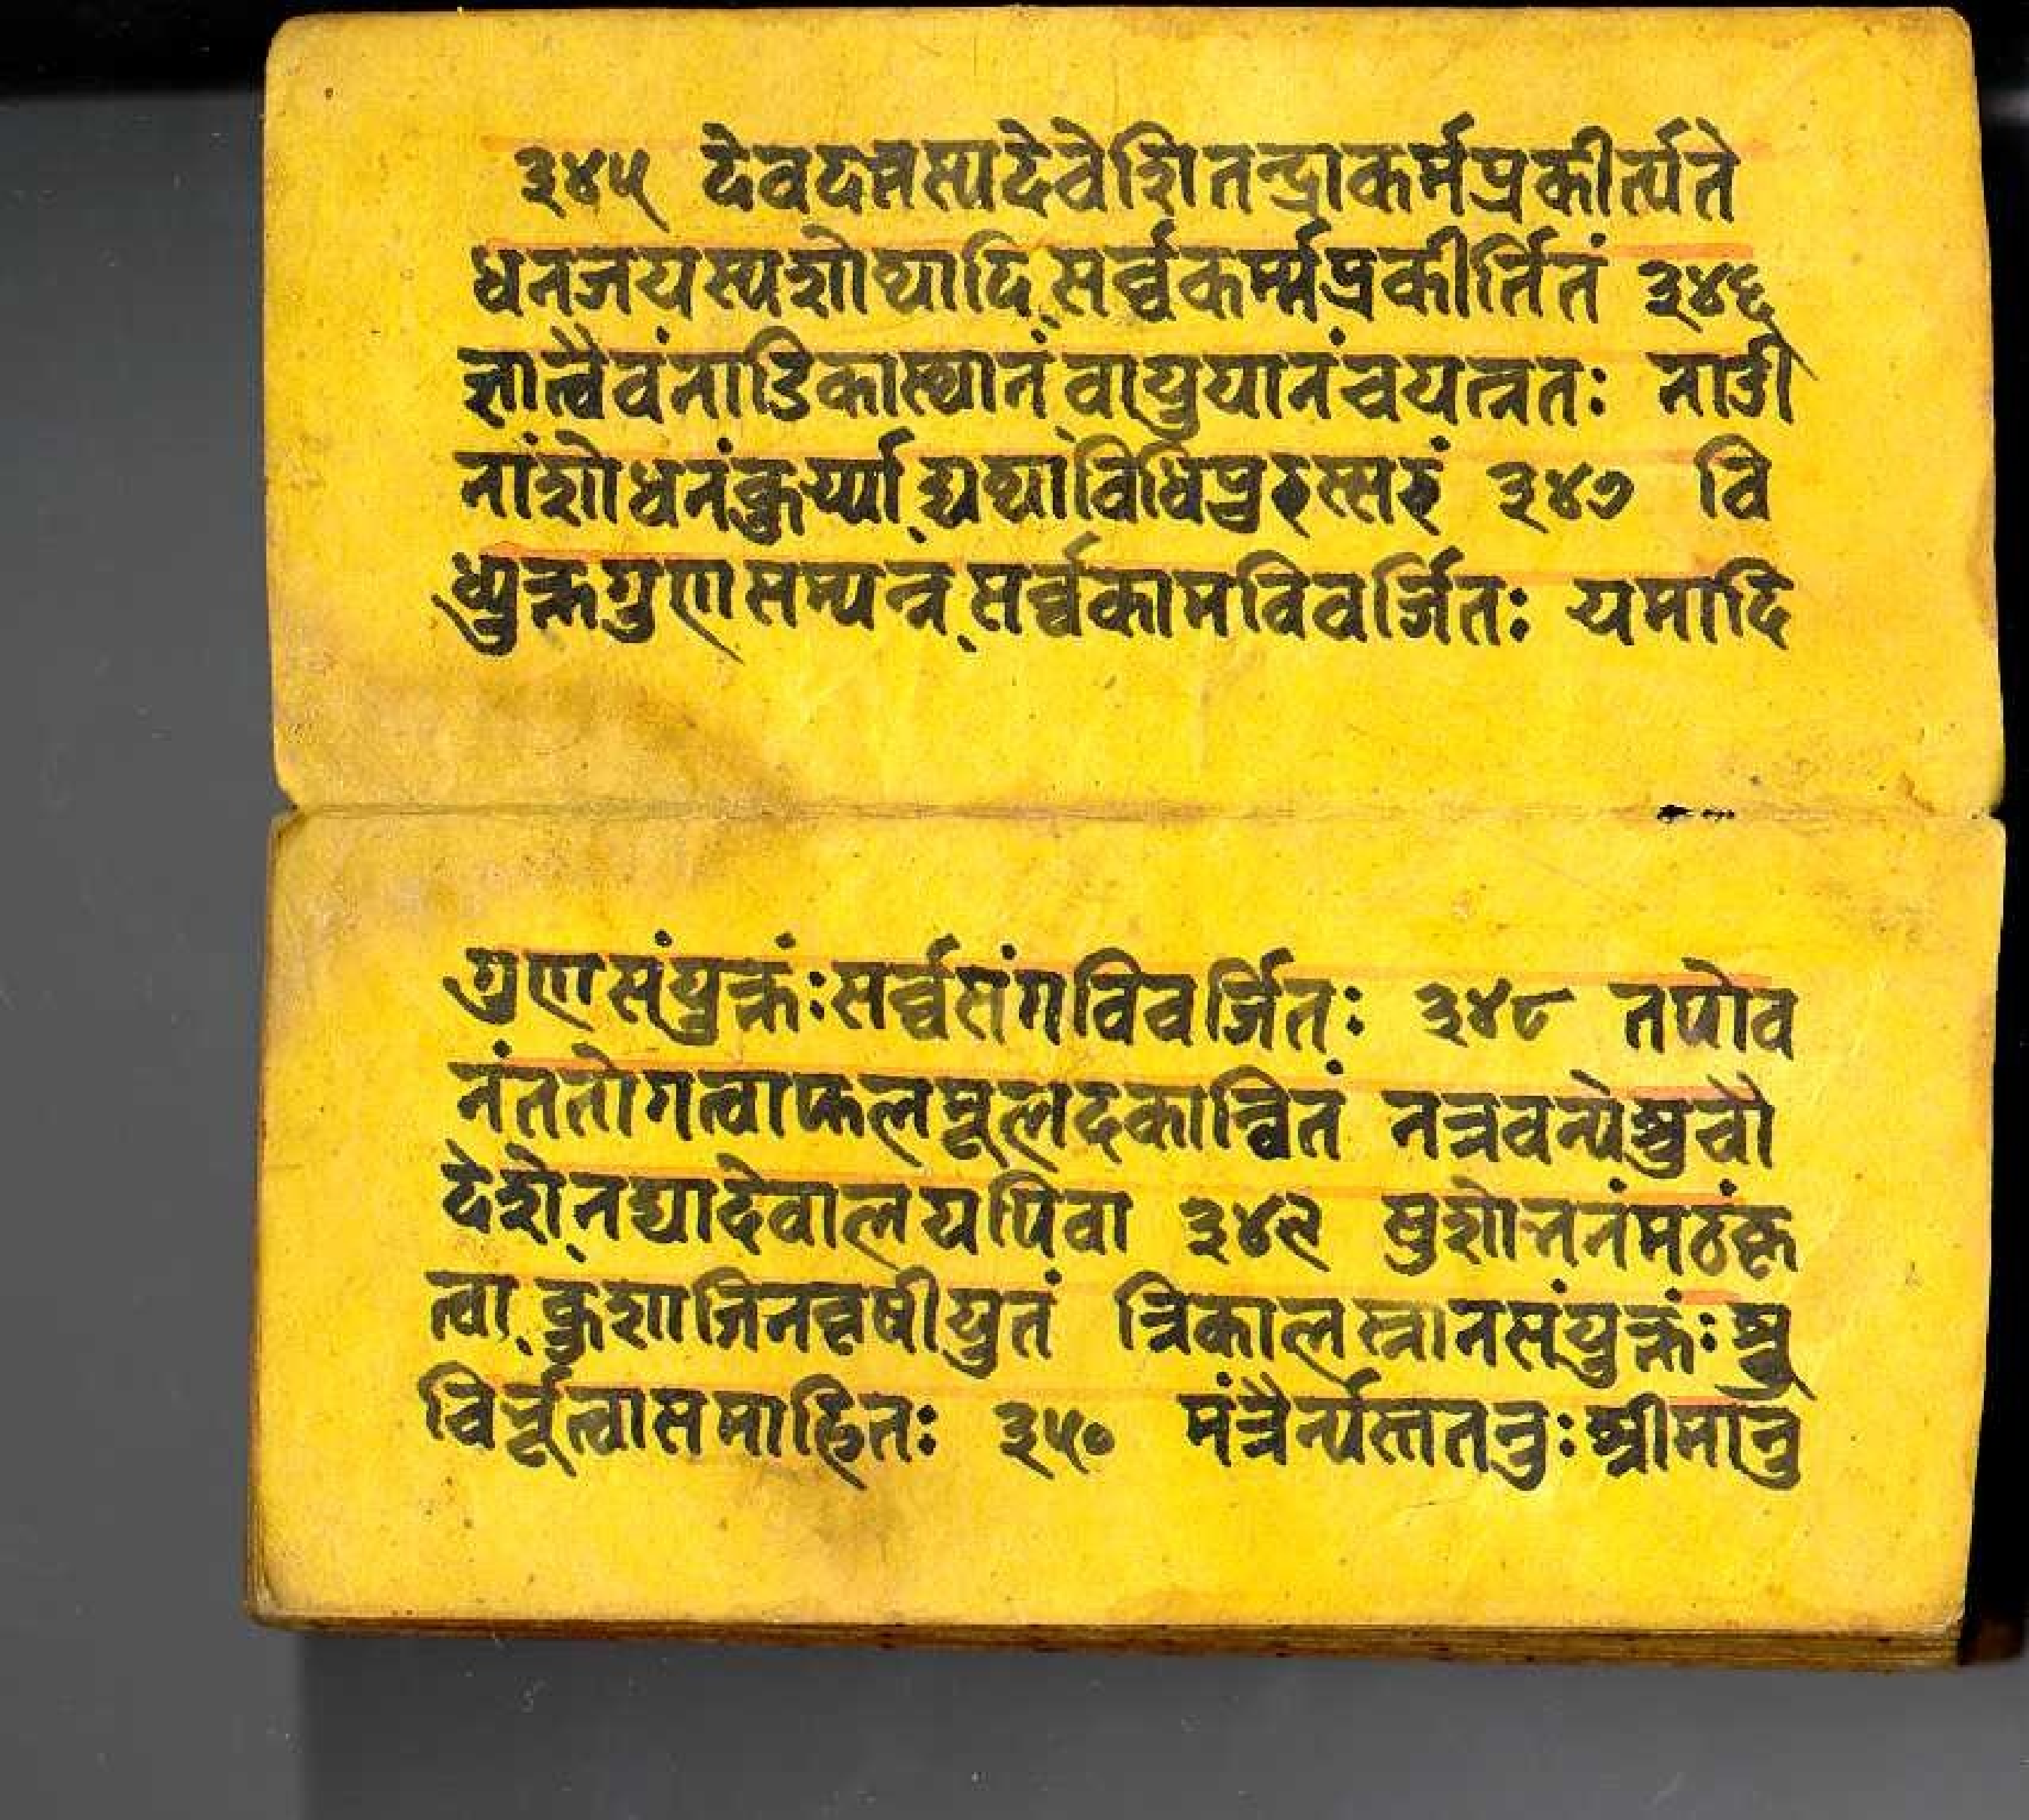 ३४५ देवदत्तस्यदेवेशितन्द्राकर्मप्रकीर्त्यते
धनजयस्यशोथ्यादि सर्व्वकर्म्मप्रकीर्तितं ३४६
ज्ञात्वैवंनाडिकास्थानं वायुयानंचयत्नतः नाडी
नांशोधनंकुर्य्या द्यथ्याविधिपुरुस्सरुं ३४७ वि
ध्युक्तगुणसम्पन्न सर्व्वकामविवर्जितः यमादि
गुणसंयुक्तंःसर्व्वसंगविवर्जितः ३४८ तपोव
नंततोगत्वाफलमूलदकान्वितं नत्रवन्येशुचौ
देशे नद्यादेवालयपिवा ३४९ षुशोत्तनंमठंकृ
त्वा कुशाजिनवृषीयुतं त्रिकालस्नानसंयुक्तंःशु
चिर्भूत्वासमाहितः ३५० मंत्रैर्न्यस्ततनुःश्रीमानु